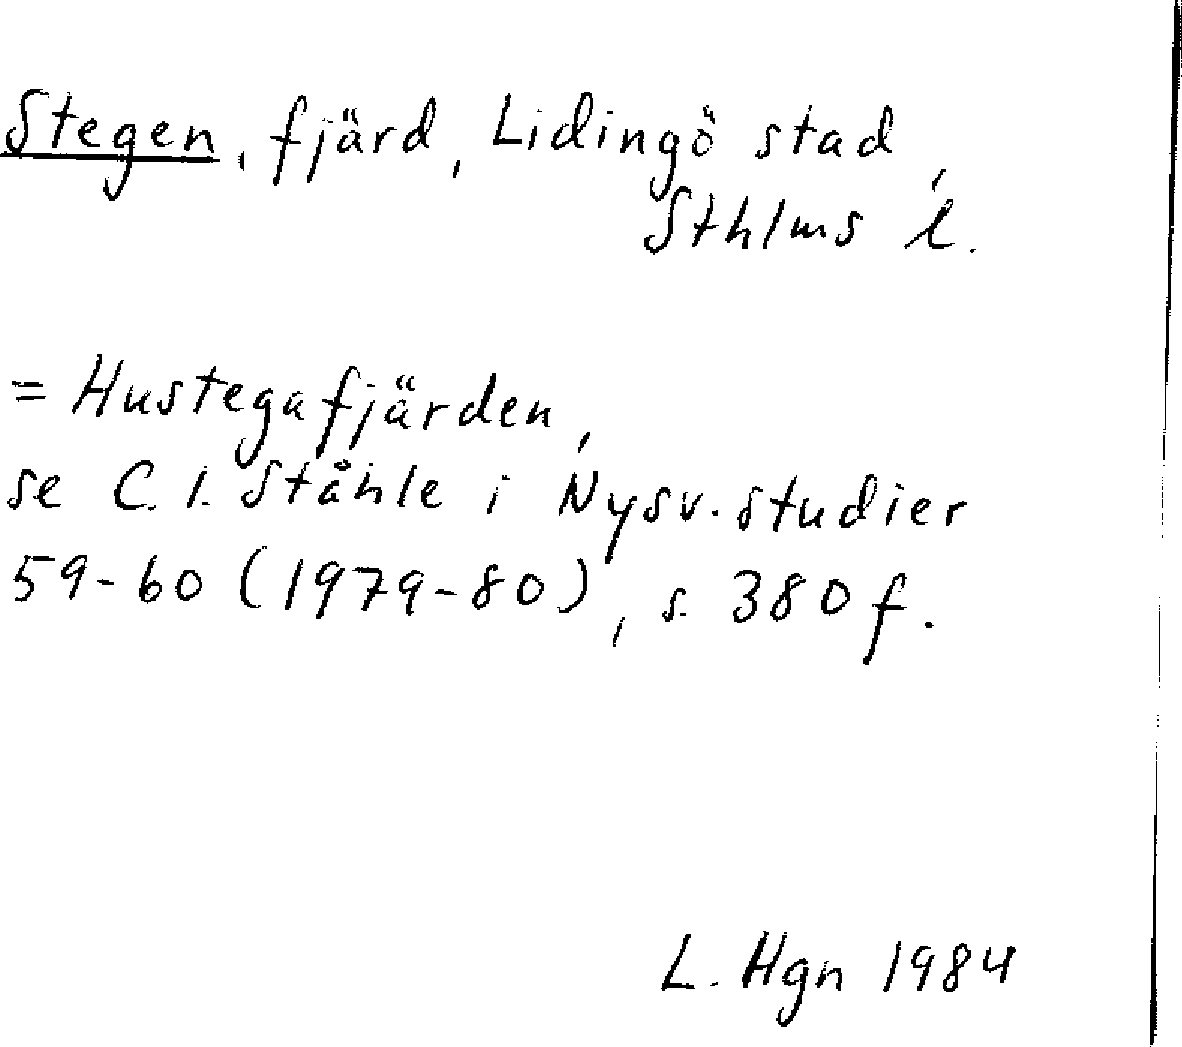 Stegen, fjärd, Lidingö stad,
Sthlms l.
= Hustegafjärden,
se C. I. Ståhle i Nysv. studier
59-60 (1979-80), s. 380 f.
L. Hgn 1984